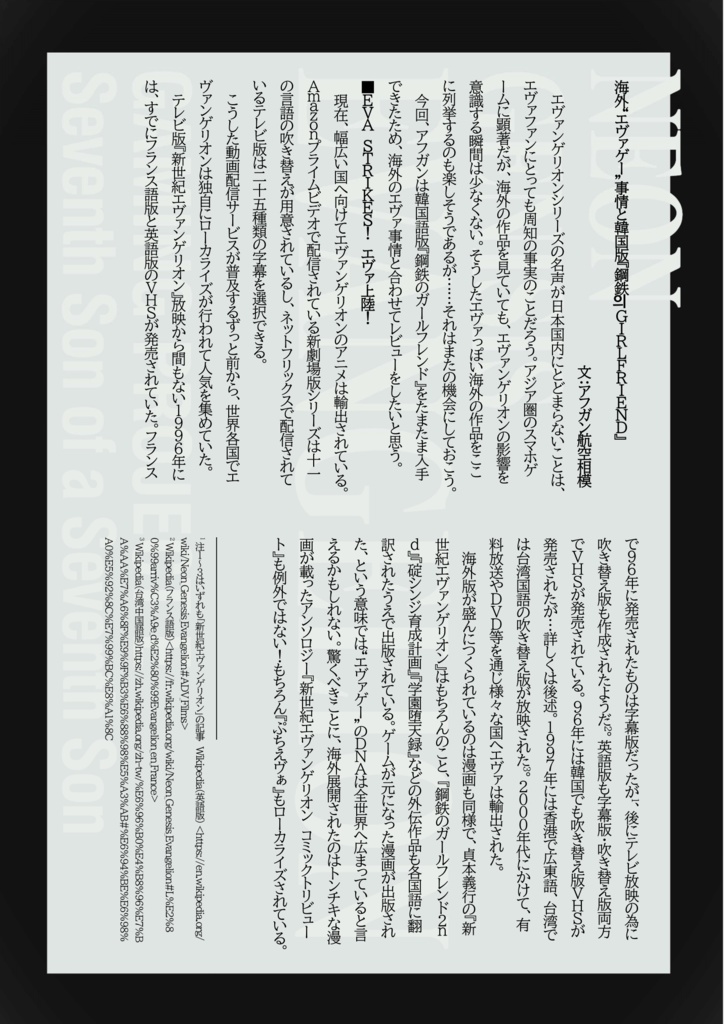 NEON
海外“エヴァゲー”事情と韓国版『鋼鉄의GIRLFRIEND』
文:アフガン航空相模
エヴァンゲリオンシリーズの名声が日本国内にとどまらないことは、
エヴァファンにとっても周知の事実のことだろう。アジア圏のスマホゲ
ームに顕著だが、海外の作品を見ていても、エヴァンゲリオンの影響を
意識する瞬間は少なくない。そうしたエヴァっぽい海外の作品をここ
に列挙するのも楽しそうであるが……それはまたの機会にしておこう。
今回、アフガンは韓国語版『鋼鉄のガールフレンド』をたまたま入手
できたため、海外のエヴァ事情と合わせてレビューをしたいと思う。
■EVA STRIKES! エヴァ上陸!
現在、幅広い国へ向けてエヴァンゲリオンのアニメは輸出されている。
Amazonプライムビデオで配信されている新劇場版シリーズは十一
の言語の吹き替えが用意されているし、ネットフリックスで配信されて
いるテレビ版は二十五種類の字幕を選択できる。
こうした動画配信サービスが普及するずっと前から、世界各国でエ
ヴァンゲリオンは独自にローカライズが行われて人気を集めていた。
テレビ版『新世紀エヴァンゲリオン』放映から間もない1996年に
は、すでにフランス語版と英語版のVHSが発売されていた。フランス
で96年に発売されたものは字幕版だったが、後にテレビ放映の為に
吹き替え版も作成されたようだ12。英語版も字幕版・吹き替え版両方
でVHSが発売されている。96年には韓国でも吹き替え版VHSが
発売されたが…詳しくは後述。1997年には香港で広東語、台湾で
は台湾国語の吹き替え版が放映された3。2000年代にかけて、有
料放送やDVD等を通じ様々な国へエヴァは輸出された。
海外版が盛んにつくられているのは漫画も同様で、貞本義行の『新
世紀エヴァンゲリオン』はもちろんのこと、『鋼鉄のガールフレンド2n
d』『碇シンジ育成計画』『学園堕天録』などの外伝作品も各国語に翻
訳されたうえで出版されている。ゲームが元になった漫画が出版され
た、という意味では“エヴァゲー”のDNAは全世界へ広まっていると言
えるかもしれない。驚くべきことに、海外展開されたのはトンチキな漫
画が載ったアンソロジー『新世紀エヴァンゲリオン コミックトリビュー
ト』も例外ではない!もちろん『ぷちえヴぁ』もローカライズされている。
1 注1~3はいずれも「新世紀エヴァンゲリオン」の記事 Wikipedia(英語版) <https://en.wikipedia.org/
wiki/Neon Genesis Evangelion#ADV Films>
2 Wikipedia(フランス語版)<https://fr.wikipedia.org/wiki/Neon Genesis Evangelion#L%E2%8
0%99arriv%C3%A9e d%E2%80%99Evangelion en France>
3 Wikipedia(台湾中国語版)https://zh.wikipedia.org/zh-tw/%E6%96%B0%E4%B8%96%E7%B
A%AA%E7%A6%8F%E9%9F%B3%E6%88%98%E5%A3%AB#%E6%94%BE%E6%98%
A0%E5%92%8C%E7%99%BC%E8%A1%8C
Seventh Son of a Seventh Son